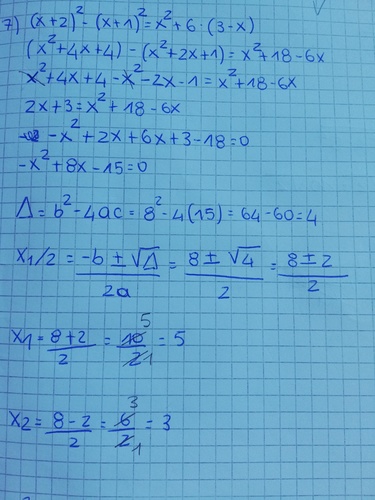 7) (x+2)² - (x+1)² = x² + 6 · (3-x)
(x²+4x+4) - (x²+2x+1) = x²+18-6x
x²+4x+4-x²-2x-1 = x²+18-6x
2x+3 = x²+18-6x
-x²+2x+6x+3-18=0
-x²+8x-15=0
Δ = b²-4ac = 8²-4(15) = 64-60 = 4
x1/2 = (-b ± √Δ)/2a = (8 ± √4)/2 = (8 ± 2)/2
x1 = (8+2)/2 = 10/2 5/1 = 5
x2 = (8-2)/2 = 6/2 3/1 = 3